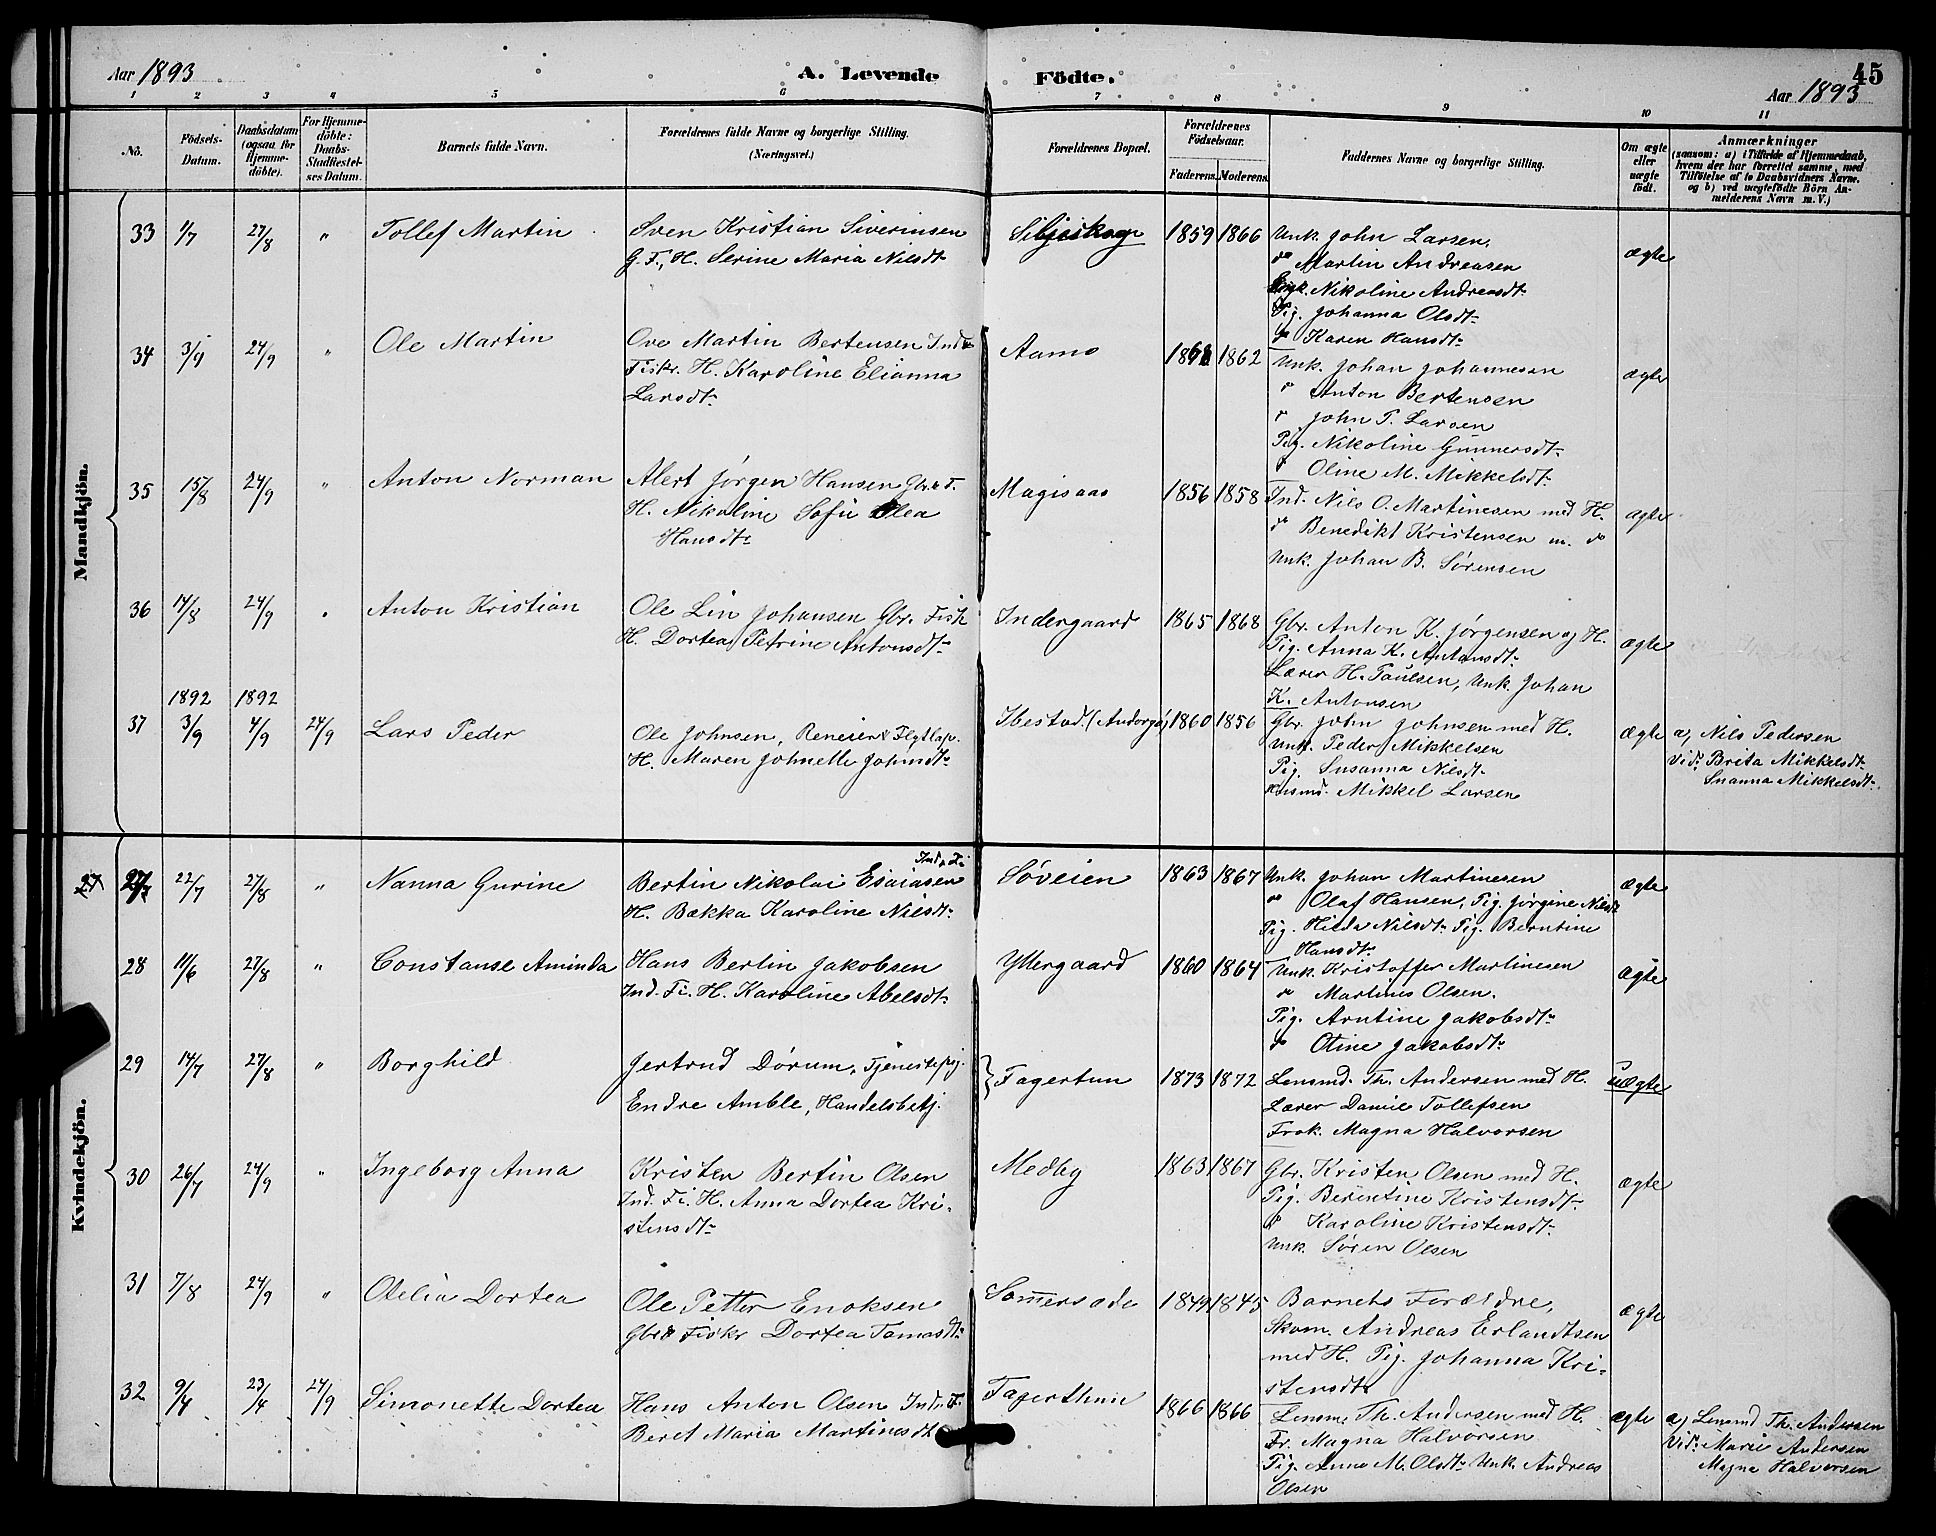 Aar 1893 A. Levende Födte. Aar 1893 45
1 2 3 4 5 6 7 8 9 10 11
No. Födsels-Datum. Daabsdatum (ogsaa for Hjemme-döbte). For Hjemme-döbte: Daabs-Stadfæstel-ses Datum. Barnets fulde Navn. Forældrenes fulde Navne og borgerlige Stilling. (Næringsvei.) Forældrenes Bopæl. Forældrenes Födselsaar. Faderens. Moderens. Faddernes Navne og borgerlige Stilling. Om ægte eller uægte födt. Anmærkninger (saasom: a) i Tilfælde af Hjemmedaab, hvem der har forrettet samme, med Tilföielse af to Daabsvidners Navne, og b) ved uægtefödte Börn Anmelderens Navn m. V.)
Mandkjön.
33 1/7 27/8 " Tollef Martin Sven Kristian Siverinsen Siljeskogn 1859 1866 Unk. John Larsen, ægte
G. F., H. Serine Maria Nilsdt. do Martin Andreasen
Enk. Nikoline Andreasdt.
Pig. Johanna Olsdt.
do Karen Hansdt.
34 3/9 24/9 " Ole Martin Ove Martin Bertensen Ind. Aamo 1862 Unk. Johan Johannesen ægte
Fiskr. H. Karoline Elianna do Anton Bertensen
Larsdt. do John P. Larsen
Pig. Nikoline Gunnersdt.
do Oline M. Mikkelsdt.
35 15/8 24/9 " Anton Norman Alert Jørgen Hansen Gbr. & F. Magisaas 1856 1858 Ind. Nils O. Martinesen med H. ægte
H. Nikoline Sofie Olea do Benedikt Kristensen m. do
Hansdt. Unk. Johan B. Sørensen
36 14/8 24/9 " Anton Kristian Ole Lin Johansen Gbr. Fisk Indergaard 1865 1868 Gbr. Anton K. Jørgensen og H. ægte
H. Dortea Petrine Antonsdt. Pig. Anna K. Antonsdt.
Lærer H. Paulsen, Unk. Johan
K. Antonsen
1892 1892
37 3/9 4/9 24/9 Lars Peder Ole Johnsen, Reneier & Flytlap. Ibestad. (Andorgø) 1860 1856 Gbr. John Johnsen med H. ægte a, Nils Pedersen
H. Maren Johnette Johnsdt. Unk. Peder Mikkelsen Vid: Brita Mikkelsdt.
Pig. Susanna Nilsdt. Susanna Mikkelsdt.
Husmd. Mikkel Larsen
Kvindekjön.
27 27 22/7 27/8 " Nanna Gurine Bertin Nikolai Esaiasen Ind. Fi. Søveien 1863 1867 Unk. Johan Martinesen ægte
H. Bækka Karoline Nilsdt. do Olaf Hansen, Pig. Jørgine Nilsdt
Pig. Hilda Nilsdt. Pig. Berntine
Hansdt.
28 11/6 27/8 " Constanse Aminda Hans Bertin Jakobsen Yttergaard 1860 1864 Unk. Kristoffer Martinesen ægte
Ind. Fi. H. Karoline Abelsdt. do Martines Olsen.
Pig. Arntine Jakobsdt.
do Otine Jakobsdt.
29 14/7 27/8 " Borghild Jertrud Dørum, Tjenestepig. Fagertun 1873 1872 Lensmd. Th. Andersen med H. uægte
Endre Amble, Handelsbetj. Lærer Daniel Tollefsen
Frøk. Magna Halvorsen
30 26/7 24/9 " Ingeborg Anna Kristen Bertin Olsen Medby 1863 1867 Gbr. Kristen Olsen med H. ægte
Ind. Fi. H. Anna Dortea Kri- Pig. Berentine Kristensdt.
stensdt. do Karoline Kristensdt.
Unk. Søren Olsen
31 7/8 24/9 " Otelia Dortea Ole Petter Enoksen Somersæde 1849 1845 Barnets Forældre, ægte
Gbr. & Fiskr Dortea Tomasdt. Skom. Andreas Erlandtsen
med H. Pig. Johanna Kri-
stensdt.
32 9/4 23/4 24/9 Simonette Dortea Hans Anton Olsen Ind. F. Fagerthun 1866 1866 Lensm. Th. Andersen med H. ægte a, Lensmd Th. Andersen
Beret Maria Martinesdt. Fr. Magna Halvorsen Vid: Marie Andersen
Pig. Anna M. Olsdt. Unk. Andreas Magna Halvorsen
Olsen